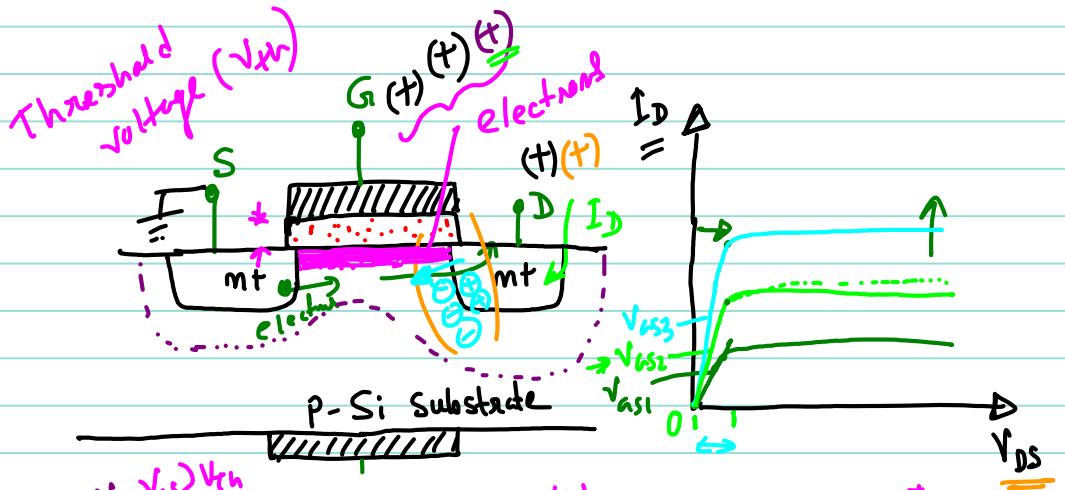 Threshold
voltage (Vth)
G (+) (+) (+)
electrons
S
(+) (+)
D
ID
n+
n+
electron
p-Si substrate
ID
VGS3
VGS2
VGS1
0
VDS